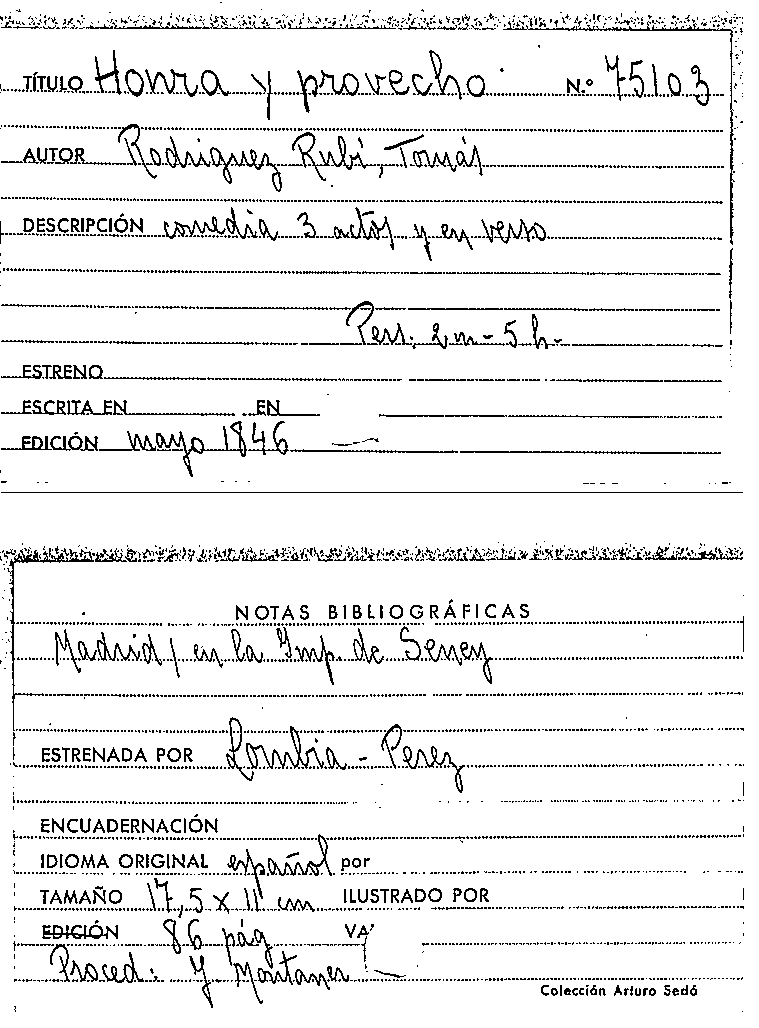 TÍTULO Honra y provecho N.º 75103
AUTOR Rodriguez Rubí, Tomás
DESCRIPCIÓN comedia 3 actos y en verso
Pers. 2 m - 5 h -
ESTRENO
ESCRITA EN EN
EDICIÓN mayo 1846
NOTAS BIBLIOGRÁFICAS
Madrid / en la Imp. de Seney
ESTRENADA POR Lombia - Perez
ENCUADERNACIÓN
IDIOMA ORIGINAL español por
TAMAÑO 17,5 x 11 cm ILUSTRADO POR
EDICIÓN 86 pág VA
Proced: J. Montaner
Colección Arturo Sedó